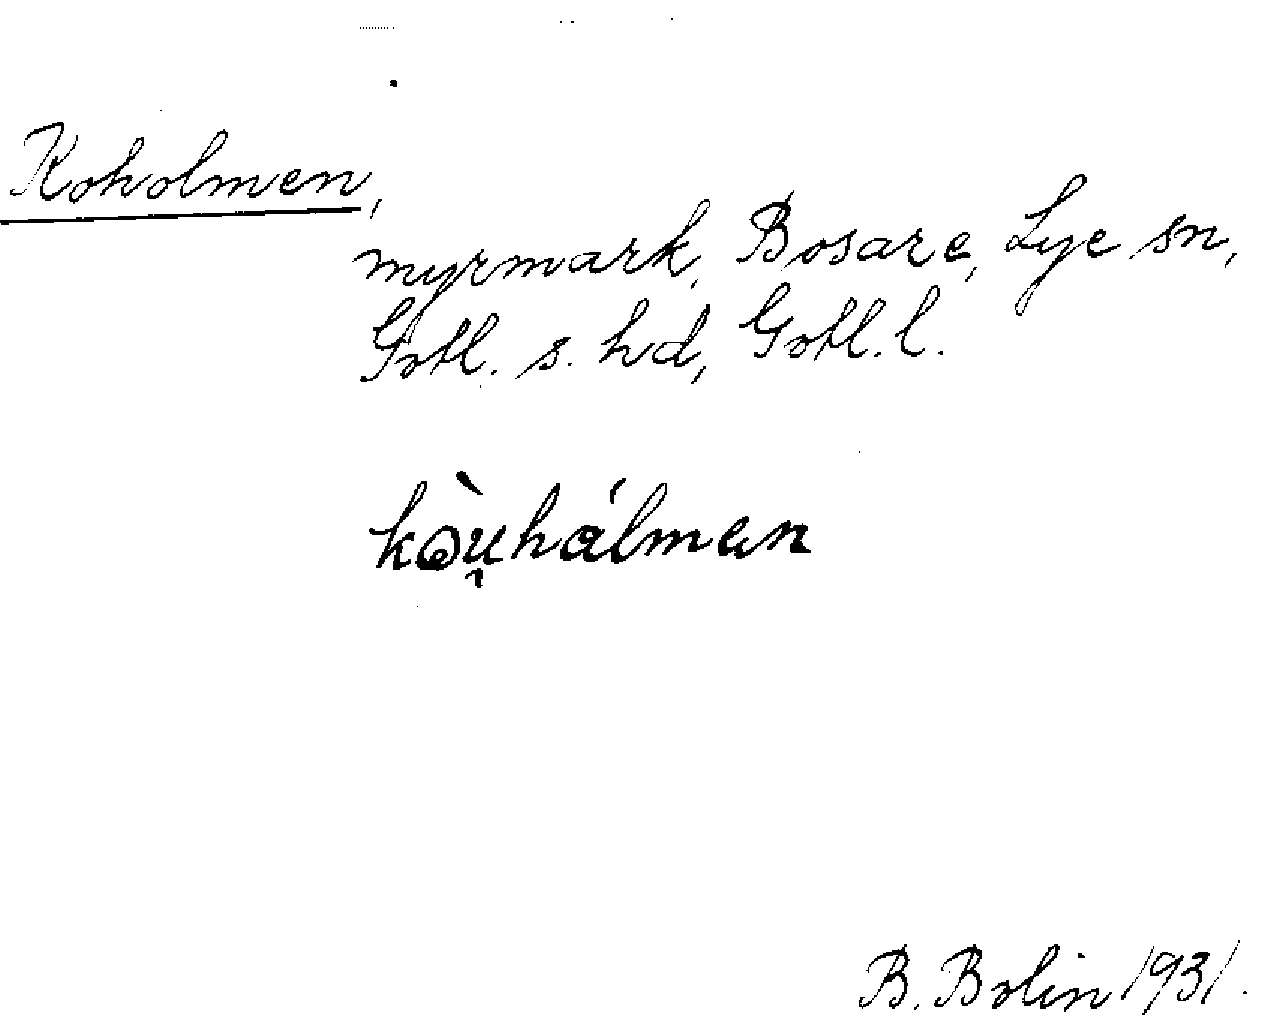 Koholmen,
myrmark, Bosare, Lye sn,
Gotl. s. hd, Gotl. l.
kòu̯hálmεn
B. Bolin 1931.